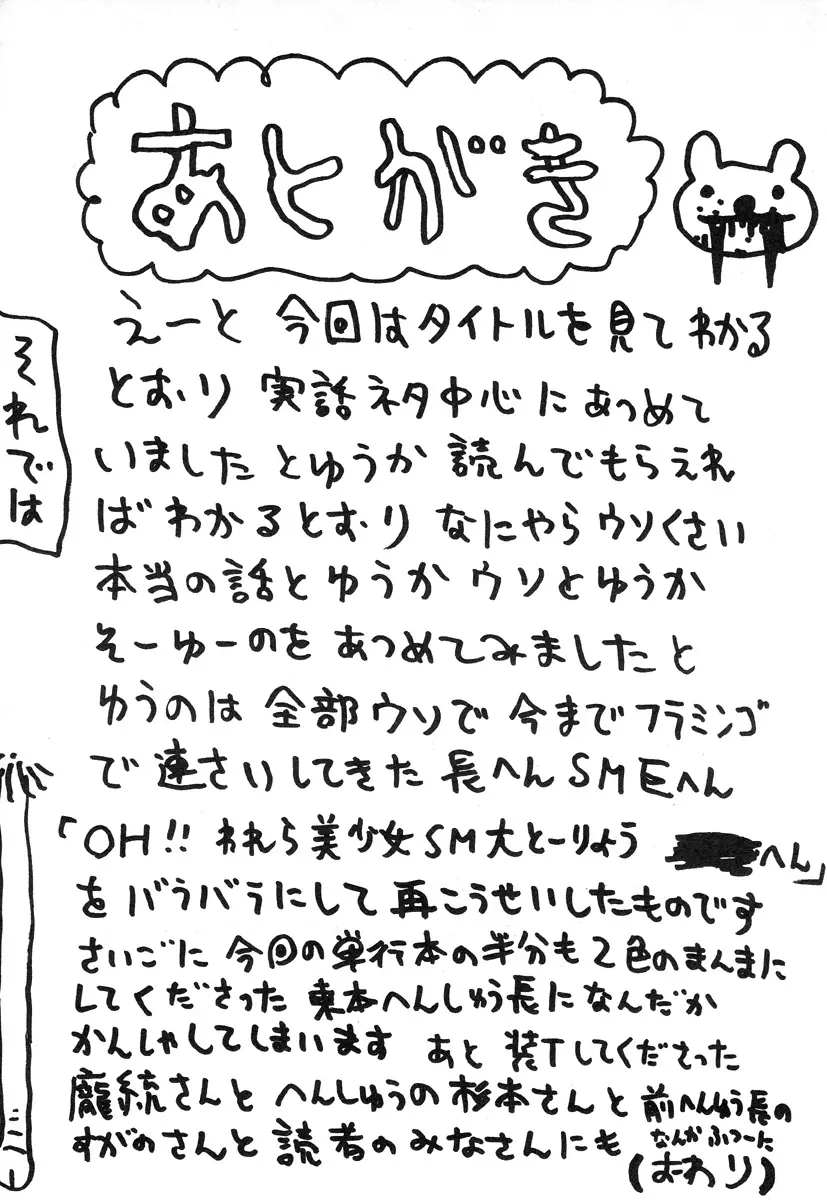 あとがき
えーと 今回はタイトルを見てわかる
とおり 実話ネタ中心にあつめて
いました とゆうか 読んでもらえれ
ば わかるとおり なにやらウソくさい
本当の話とゆうか ウソとゆうか
そーゆーのを あつめてみましたと
ゆうのは 全部ウソで 今までフラミンゴ
で 連さいしてきた 長へんSMEへん
「OH!! われら美少女SM大とーりょう へん」
を バラバラにして 再こうせいしたものです
さいごに 今回の単行本の半分も2色のまんまに
してくださった 東本へんしゅう長になんだか
かんしゃしてしまいます あと 装丁してくださった
龐統さんと へんしゅうの杉本さんと 前へんしゅう長の
すがのさんと 読者のみなさんにも なんかふつーに
(おわり)
それでは